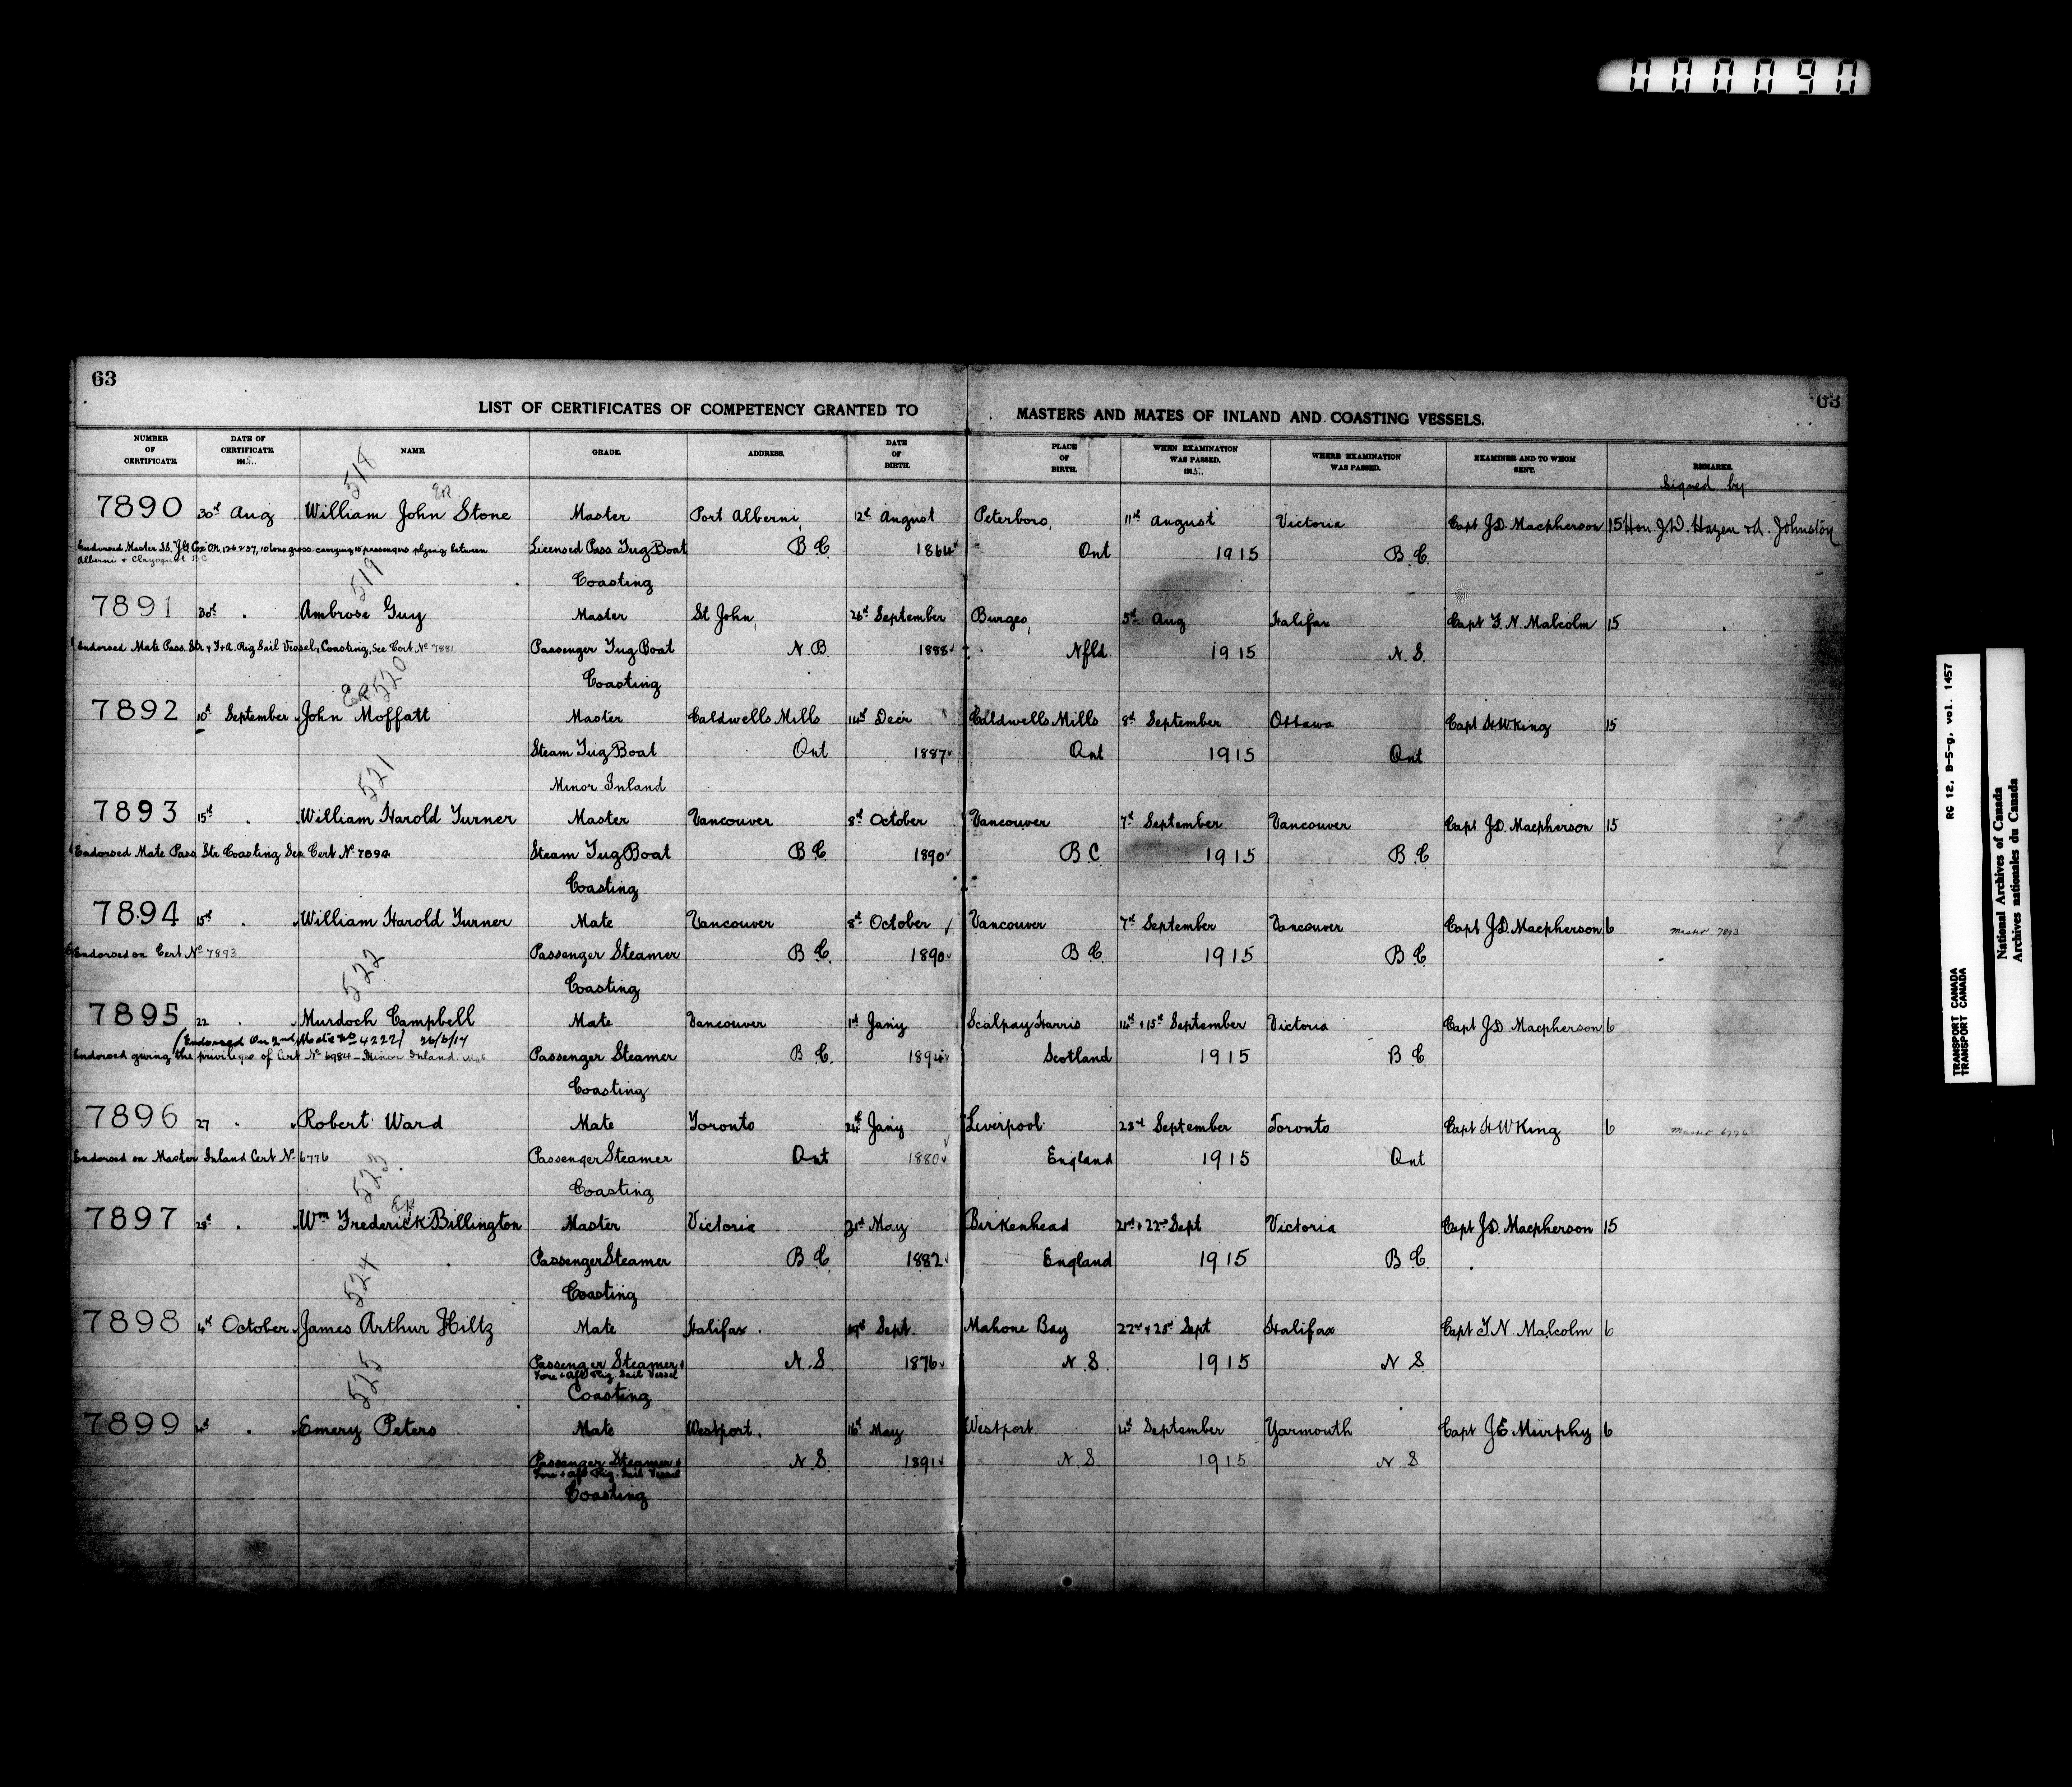 000090
63
63
LIST OF CERTIFICATES OF COMPETENCY GRANTED TO MASTERS AND MATES OF INLAND AND COASTING VESSELS.
NUMBER OF CERTIFICATE. DATE OF CERTIFICATE. 1915.. NAME. GRADE. ADDRESS. DATE OF BIRTH. PLACE OF BIRTH. WHEN EXAMINATION WAS PASSED. 1915.. WHERE EXAMINATION WAS PASSED. EXAMINER AND TO WHOM SENT. REMARKS.
Signed by
518
7890 30th Aug William John Stone Master Port Alberni, 12th August Peterboro, 11th August Victoria Capt J.D. Macpherson 15 Hon. J.D. Hazen & A. Johnston
Endorsed Master SS. "J G Cox" ON. 126237, 10 tons gross carrying 15 passengers plying between Licensed Pass Tug Boat B C. 1864 Ont 1915 B.C.
Alberni & Clayoquot B C
Coasting
519
7891 30th . Ambrose Guy Master St John, 26th September Burgeo, 5th Aug Halifax Capt F. N. Malcolm 15
Endorsed Mate Pass. Str & F&A. Rig Sail Vessel, Coasting, See Cert No 7881 Passenger Tug Boat N.B 1888 Nfld. 1915 N.S.
Coasting
520
7892 10th September John Moffatt Master Caldwells Mills 14th Decr Caldwells Mills 8th September Ottawa Capt H W King 15
Steam Tug Boat Ont 1887 Ont 1915 Ont
Minor Inland
521
7893 15th . William Harold Turner Master Vancouver 8th October Vancouver 7th September Vancouver Capt J.D. Macpherson 15
Endorsed Mate Pass Str Coasting See Cert No 7894 Steam Tug Boat B C 1890 B C. 1915 B C
Coasting
7894 15th . William Harold Turner Mate Vancouver 8th October Vancouver 7th September Vancouver Capt J.D. Macpherson 6 Master 7893
Endorsed on Cert No 7893 Passenger Steamer B C. 1890 B C. 1915 B C.
Coasting
522
7895 22 . Murdoch Campbell Mate Vancouver 1st Jany Scalpay Harris 14th & 15th September Victoria Capt J.D. Macpherson 6
(Endorsed on 2nd Mate No 4222) 26/6/17
Endorsed giving the privileges of Cert No 6984 - Minor Inland Mate Passenger Steamer B C. 1894 Scotland 1915 B C.
Coasting
7896 27 . Robert Ward Mate Toronto 24th Jany Liverpool 23rd September Toronto Capt H W King 6 Master 6776
Endorsed on Master Inland Cert No 6776 Passenger Steamer Ont 1880 England 1915 Ont
Coasting
523
7897 28th . Wm Frederick Billington Master Victoria 21st May Birkenhead 21st & 22nd Sept Victoria Capt J.D. Macpherson 15
Passenger Steamer B C. 1882 England 1915 B C.
Coasting
524
7898 4th October James Arthur Hiltz Mate Halifax . 19th Sept. Mahone Bay 22nd & 23rd Sept Halifax Capt F.N. Malcolm 6
Passenger Steamer & N.S 1876 N.S. 1915 N S
Fore & aft Rig. Sail Vessel
Coasting
525
7899 4th . Emery Peters Mate Westport. 16th May Westport 4th September Yarmouth Capt J E Murphy 6
Passenger Steamer & N.S 1891 N.S. 1915 N S
Fore & aft Rig. Sail Vessel
Coasting
RG 12, B-5-g, vol. 1457
TRANSPORT CANADA
TRANSPORT CANADA
National Archives of Canada
Archives nationales du Canada